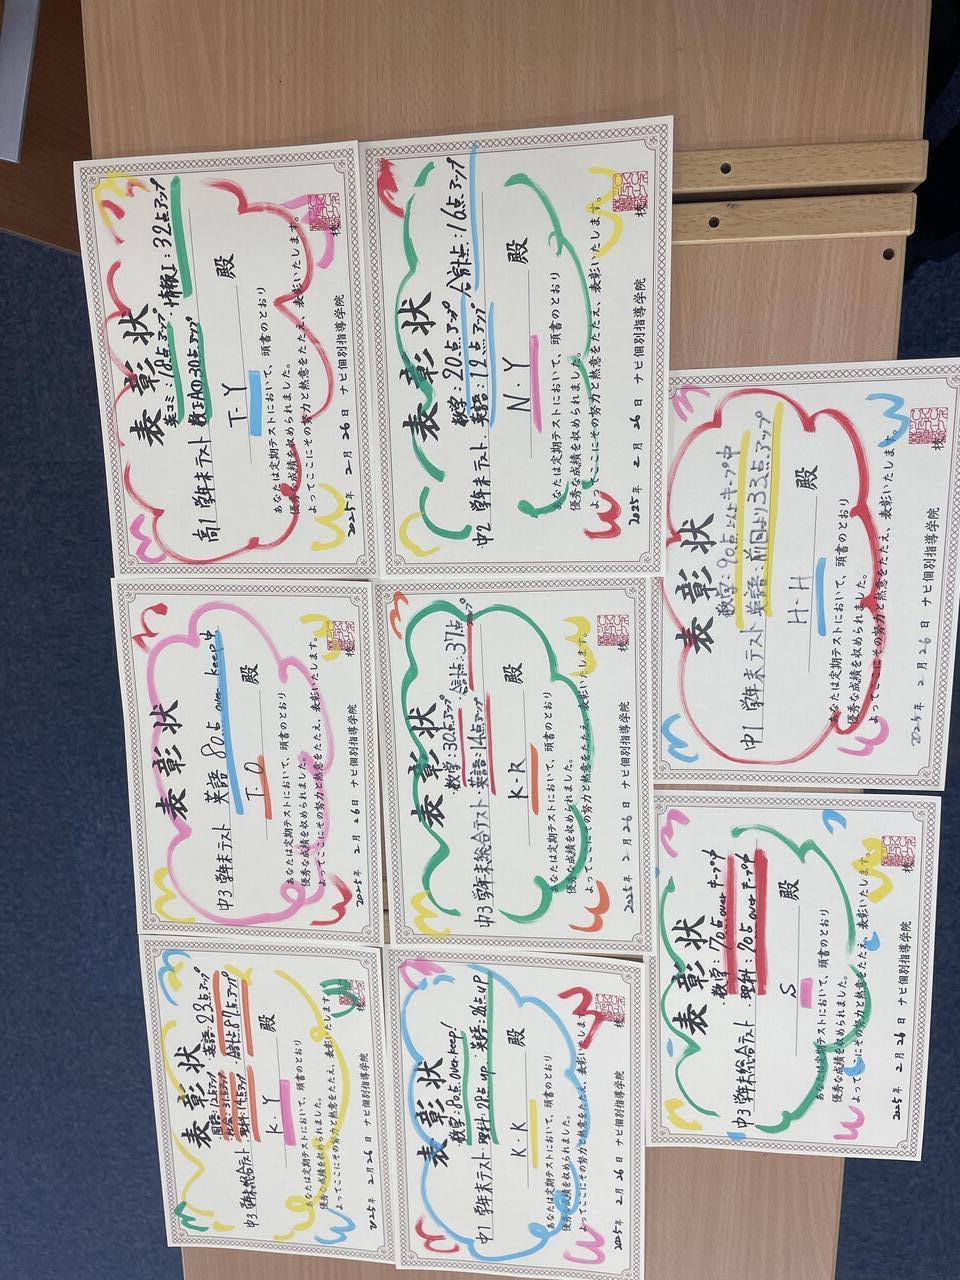 表彰状
英コミ 18点アップ・情報I:32点アップ
高1 学年末テスト 数I 30点アップ
T・Y 殿
あなたは定期テストにおいて、頭書のとおり
優秀な成績を収められました。
よってここにその努力と熱意をたたえ、表彰いたします。
2025年 2月26日 ナビ個別指導学院 校
表彰状
数学:20点アップ 合計点:16点アップ
中2 学年末テスト・英語:19点アップ
N・Y 殿
あなたは定期テストにおいて、頭書のとおり
優秀な成績を収められました。
よってここにその努力と熱意をたたえ、表彰いたします。
2025年 2月26日 ナビ個別指導学院 校
表彰状
数学:90点以上キープ中
中1 学年末テスト 英語:前回より33点アップ
H・H 殿
あなたは定期テストにおいて、頭書のとおり
優秀な成績を収められました。
よってここにその努力と熱意をたたえ、表彰いたします。
2025年 2月26日 ナビ個別指導学院 校
表彰状
中3 学年末テスト 英語 80点 over keep中
T・O 殿
あなたは定期テストにおいて、頭書のとおり
優秀な成績を収められました。
よってここにその努力と熱意をたたえ、表彰いたします。
2025年 2月26日 ナビ個別指導学院 校
表彰状
・数学:30点アップ・合計点:37点アップ
中3 学年末総合テスト・英語:14点アップ
K・R 殿
あなたは定期テストにおいて、頭書のとおり
優秀な成績を収められました。
よってここにその努力と熱意をたたえ、表彰いたします。
2025年 2月26日 ナビ個別指導学院 校
表彰状
・数学:70点overキープ中
中3 学年末総合テスト ・理科:90点overキープ中
S 殿
あなたは定期テストにおいて、頭書のとおり
優秀な成績を収められました。
よってここにその努力と熱意をたたえ、表彰いたします。
2025年 2月26日 ナビ個別指導学院 校
表彰状
国語:12点アップ 英語:23点アップ
社会:31点アップ・合計点87点アップ
中3 学年末総合テスト 理科:14点アップ
K・Y 殿
あなたは定期テストにおいて、頭書のとおり
優秀な成績を収められました。
よってここにその努力と熱意をたたえ、表彰いたします。
2025年 2月26日 ナビ個別指導学院 校
表彰状
数学:80点over keep!
中1 学年末テスト・理科:28点up 英語:26点up
K・K 殿
あなたは定期テストにおいて、頭書のとおり
優秀な成績を収められました。
よってここにその努力と熱意をたたえ、表彰いたします。
2025年 2月26日 ナビ個別指導学院 校